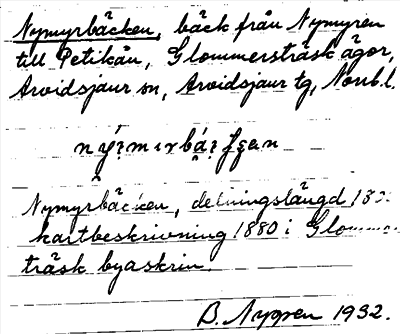 Nymyrbäcken, bäck från Nymyren
till Petikån, Glommersträsk ägor,
Arvidsjaur sn, Arvidsjaur tg, Norrb. l.
Nymyrbäcken, delningslängd
kartbeskrivning 1880 i Glommers-
träsk byaskrin.
B. Nygren 1932.